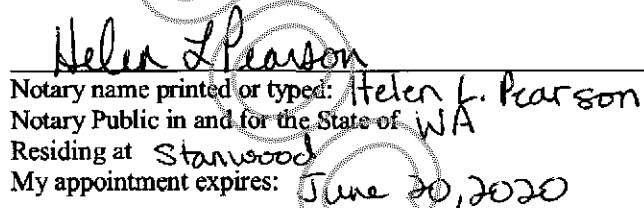 Helen L Pearson
Notary name printed or typed: Helen L. Pearson
Notary Public in and for the State of WA
Residing at Stanwood
My appointment expires: June 20, 2020